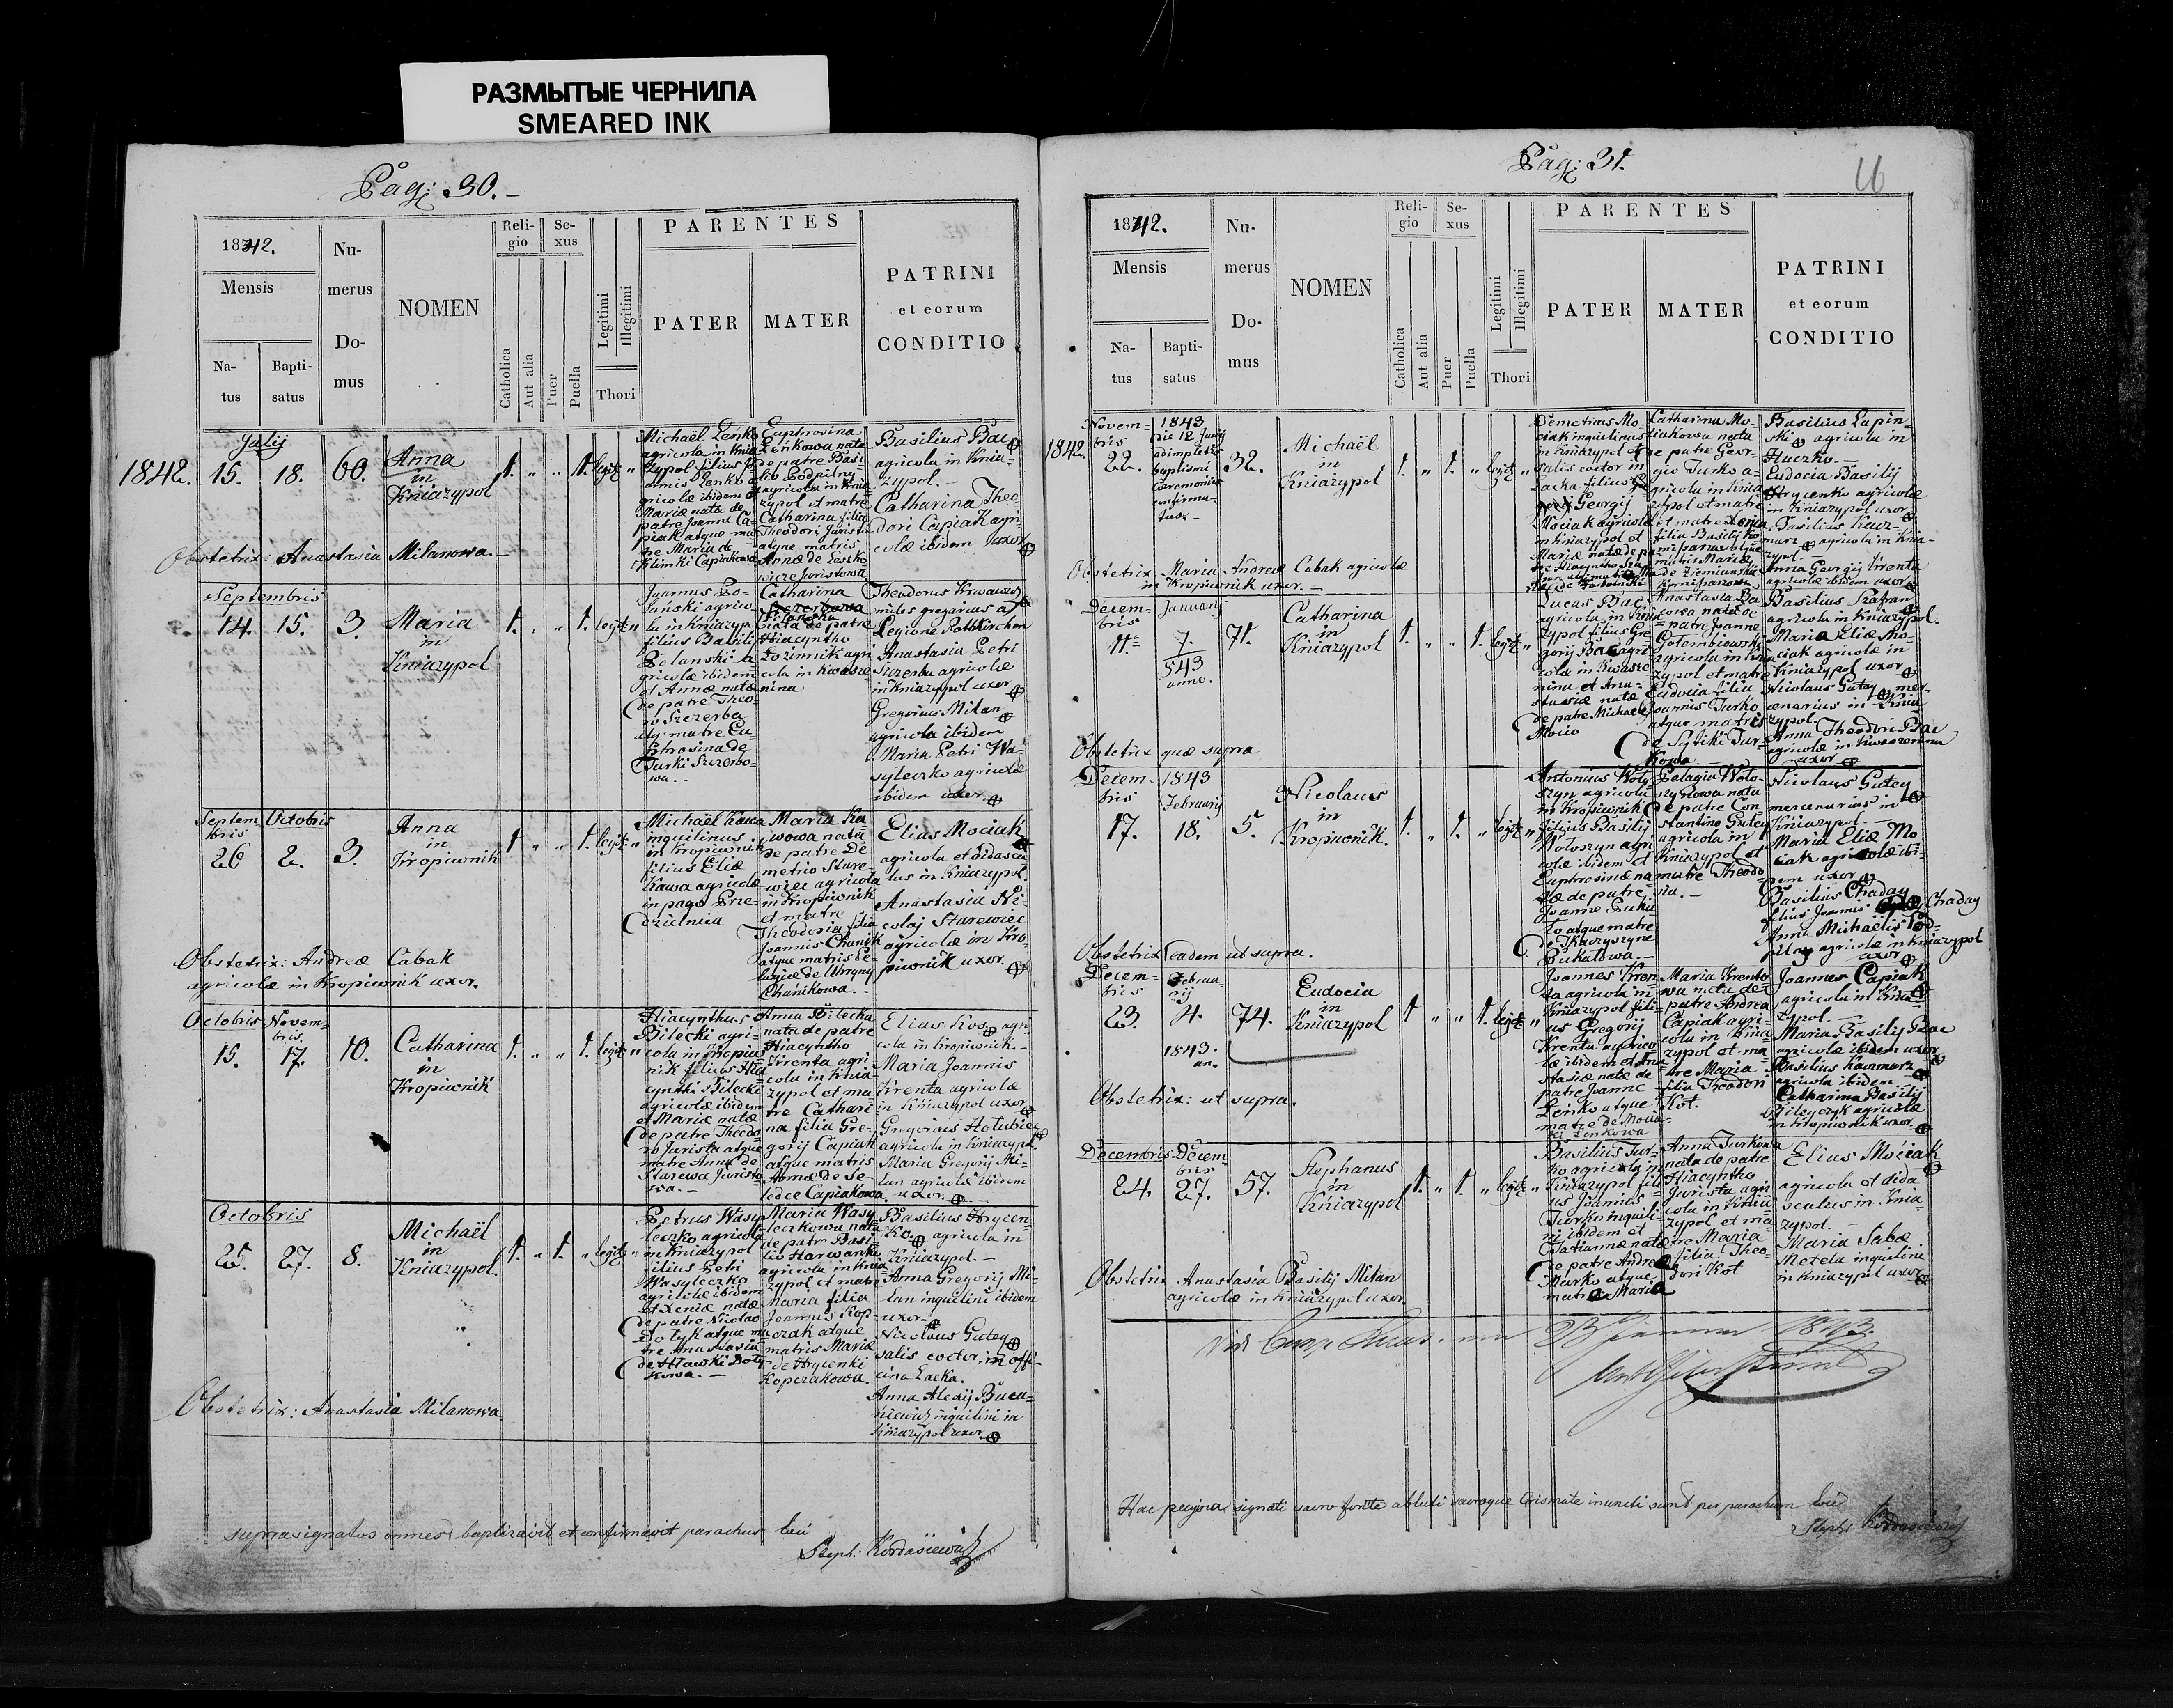 РАЗМЫТЫЕ ЧЕРНИЛА
SMEARED INK
Pag: 30.-
1842.
Mensis
Na-
tus
Bapti-
satus
Nu-
merus
Do-
mus
NOMEN
Reli-
gio
Catholica
Aut alia
Se-
xus
Puer
Puella
Legitimi
Illegitimi
Thori
PARENTES
PATER
MATER
PATRINI
et eorum
CONDITIO
1842.
Julij
15. 18. 60.
Anna
in
Kniazypol
1. " " 1. legit: "
Michaël Leńko
agricola in Knia-
zypol filius Jo-
annis Leńko a-
gricolæ ibidem et
Mariæ natæ de
patre Joanne Ca-
piak atque ma-
tre Maria de
Klimki Capiakowa
Euphrosina
Leńkowa nata
de patre Basi-
lio Podpilny
agricola in Knia-
zypol et matre
Catharina filia
Theodori Jurista
atque matris
Annæ de Leszko
wicze Juristowa
Basilius Bac
agricola in Knia-
zypol.-
Catharina Theo
dori Capiak agri
colæ ibidem uxor
Obstetrix: Anastasia Milanowa.-
Septembris
14. 15. 3.
Maria
in
Kniazypol
1. " " 1. legit: "
Joannes Po-
lański agrico-
la in Kniazypol
filius Basilij
Polanski a-
gricolæ ibidem
et Annæ natæ
de patre Theo-
ro Szczerba
atq: matre Eu-
phrosina de
Turki Szczerbo-
wa.-
Catharina
Polańska
nata de patre
Hiacyntho
Łozinnik agri
cola in Kwasze
nina
Theodorus
miles gregarius a
Legione Rothkirchen
Anastasia Petri
Szczerba agricolæ
in Kniazypol uxor
Gregorius Milan
agricola ibidem
Maria Petri Wa-
syleczko agricolæ
ibidem uxor.
Septem
bris
Octobris
26 2. 3.
Anna
in
Kropiwnik
1 " " 1. legit: "
Michaël Kawa
inquilinus
in Kropiwnik
filius Eliæ
Kawa agricolæ
in pago Brze-
zielnica
Maria Ka
wowa nata
de patre De
metrio Stare-
wiec agricola
in Kropiwnik
et matre
Theodosia filia
Joannis Chanik
atque matris Pe-
lagiæ de
Chanikowa.-
Elias Mociak
agricola et didasca
lus in Kniazypol.
Anastasia Ni-
colaj Starewiec
agricolæ in Kro-
piwnik uxor.
Obstetrix: Andreæ Cabak
agricolæ in Kropiwnik uxor.
Octobris Novem-
bris.
15. 17. 10.
Catharina
in
Kropiwnik
1. " " 1. legit: "
Hiacynthus
Bilecki agri-
cola in Kropiw-
nik filius Hia
cynthi Bilecki
agricolæ ibidem
et Mariæ natæ
de patre Theodo-
ro Jurista atque
matre Anna de
Starewa Juristo-
wa.-
Anna Bilecka
nata de patre
Hiacyntho
Krenta agri-
cola in Knia-
zypol et ma-
tre Cathari-
na filia Gre-
gorij Capiak
atque matris
Annæ de Se-
ledce Capiakowa
Elias Kos agri
cola in Kropiwnik.-
Maria Joannis
Krenta agricolæ
in Kniazypol uxor
Gregorius Holubiec
agricola in Kniazypol
Maria Gregorij Mi-
lan agricolæ ibidem
uxor.
Octobris
25. 27. 8.
Michaël
in
Kniazypol.
1. " 1. " legit: "
Petrus Wasy-
leczko agricola
in Kniazypol
filius Petri
Wasyleczko
agricolæ ibidem
et Xeniæ natæ
de patre Nicolao
Dotyk atque ma
tre Anastasia
de Hławki Doty-
kowa.-
Maria Wasy
leczkowa nata
de patre Basi-
lio Harwanko
agricola in Knia
zypol et matre
Maria filia
Joannis Kop-
czak atque
matris Mariæ
de Hrycenki
Kopczakowa.
Basilius Hrycen
ko. agricola in
Kniazypol.-
Anna Gregorij Mi-
lan inquilini ibidem
uxor.
Nicolaus Gutey
salis coctor in offi-
cina Lacka.
Anna Alexij Bucu-
niewicz inquilini in
Kniazypol uxor.
Obstetrix: Anastasia Milanowa
suprasignatos omnes baptizavit et confirmavit parochus loci
Steph: Kordasiewicz
Pag: 31.
1842.
Mensis
Na-
tus
Bapti-
satus
Nu-
merus
Do-
mus
NOMEN
Reli-
gio
Catholica
Aut alia
Se-
xus
Puer
Puella
Legitimi
Illegitimi
Thori
PARENTES
PATER
MATER
PATRINI
et eorum
CONDITIO
1842.
Novem-
bris
22.
1843
die 12 Junij
adimpletis
baptismi
ceremoniis
confirma-
tus.-
32.
Michaël
in
Kniazypol
1. " 1. " legit: "
Demetrius Mo-
ciak inquilinus
in Kniazypol et
salis coctor in
Lacka filius
Georgij
Mociak agricolæ
in Kniazypol et
Mariæ natæ de pa
Catharina Mo-
ciakowa nata
de patre Geor-
gio Turko a-
gricola in Knia
zypol et matre
et matre Xenia
filia Basilij Ko-
atque
matris Mariæ
de Ziemianski
Basilius Lapin-
ski agricola in
Huczko.-
Eudocia Basilij
Hrycenko agricolæ
in Kniazypol uxor
Basilius Kacz-
marz agricola in Knia-
zypol.-
Anna Georgij Krenta
agricolæ ibidem uxor
Obstetrix Maria Andreæ Cabak agricolæ
in Kropiwnik uxor.-
Decem-
bris
11.
Januarij
7.
543
anno.
71.
Catharina
in
Kniazypol
1. " " 1. legit: "
Lucas Bac
agricola in Knia
zypol filius Gre-
gorij Bac agri
cola in Kwasze
nina et Ana-
stasiæ natæ
de patre Michaele
Mocio
Anastasia Ba
cowa nata de
patre Joanne
Gołembiowski
agricola in Knia
zypol et matre
Eudocia filia
Joannis Turko
atque matris
de Sytiki Tur-
kowa
Basilius Szafran
agricola in Kniazypol.
Maria Eliæ Mo-
ciak agricolæ in
Kniazypol uxor
Nicolaus Gutey mer-
cenarius in Knia
zypol
Anna Theodori Bac
agricolæ in Kwaszenina
uxor
Obstetrix quæ supra
Decem-
bris
17.
1843
Februarij
18. 5.
Nicolaus
in
Kropiwnik.
1. " 1. " legit: "
Antonius Woło-
szyn agricola
in Kropiwnik
filius Basilij
Wołoszyn agri-
colæ ibidem et
Euphrosinæ na
tæ de patre
Joanne Buka
to atque matre
de Tkaczyszyne
Bukatowa.-
Pelagia Woło-
szynowa nata
de patre Con
stantino Gutey
agricola in
Kniazypol et
matre Theodo
sia.-
Nicolaus Gutey
mercenarius in
Kniazypol.-
Maria Eliæ Mo
ciak agricolæ ibi-
dem uxor
Basilius Chaday
filius Joannis Chaday
Anna Michaëlis Pod-
pilny agricolæ in Kniazypol
uxor
Obstetrix eadem ut supra.
Decem-
bris
23.
Februa-
rij
4.
1843.
an.
74.
Eudocia
in
Kniazypol
1 " " 1. legit: "
Joannes Kren-
ta agricola in
Kniazypol fili-
us Gregorij
Krenta agrico
læ ibidem et Ana
stasiæ natæ de
patre Joanne
Leńko atque
matre de Mocia-
ki Leńkowa
Maria Krento
wa nata de
patre Andrea
Capiak agri-
cola in Knia
zypol et ma-
tre Maria
filia Theodori
Kot.
Joannes Capiak
agricola in Knia
zypol.-
Maria Basilij Bac
agricolæ ibidem uxor
Basilius Kaczmarz
agricola ibidem
Catharina Basilij
Bileyczyk agricolæ
in Kropiwnik uxor.
Obstetrix: ut supra.
Decembris Decem-
bris
24. 27. 57.
Stephanus
in
Kniazypol
1. " 1. " legit: "
Basilius Tur-
ko agricola in
Kniazypol fili
us Joannis
Turko inquili-
ni ibidem et
Tatiannæ natæ
de patre Andrea
Marko atque
matre Maria
Anna Turkowa
nata de patre
Hiacyntho
Jurista agri
cola in Knia
zypol et ma
tre Maria
filia Theo-
dori Kot
Elias Mociak
agricola et dida
scalus in Knia
zypol.-
Maria Sabæ
Mozola inquilini
in Kniazypol uxor
Obstetrix Anastasia Basilij Milan
agricolæ in Kniazypol uxor.
1843.
Hac pagina signati sacro fonte abluti sacroque Crismate inuncti sunt per parochum loci
Steph: Kordasiewicz